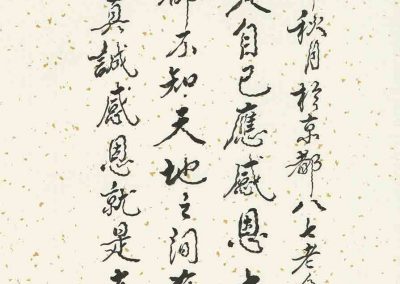 秋月於京都八七老
自己應感恩
不知天地之間
真誠感恩就是